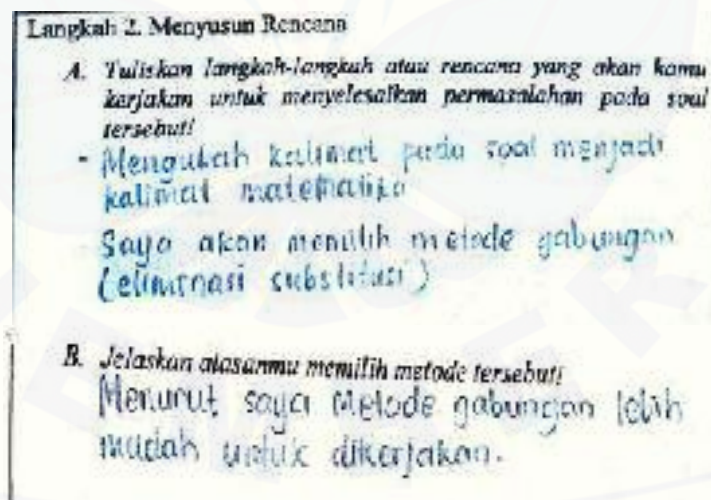 Langkah 2. Menyusun Rencana
A. Tuliskan langkah-langkah atau rencana yang akan kamu
kerjakan untuk menyelesaikan permasalahan pada soal
tersebut!
- Mengubah kalimat pada soal menjadi
kalimat matematika
Saya akan memilih metode gabungan
(eliminasi substitusi)
B. Jelaskan alasanmu memilih metode tersebut!
Menurut saya metode gabungan lebih
mudah untuk dikerjakan.